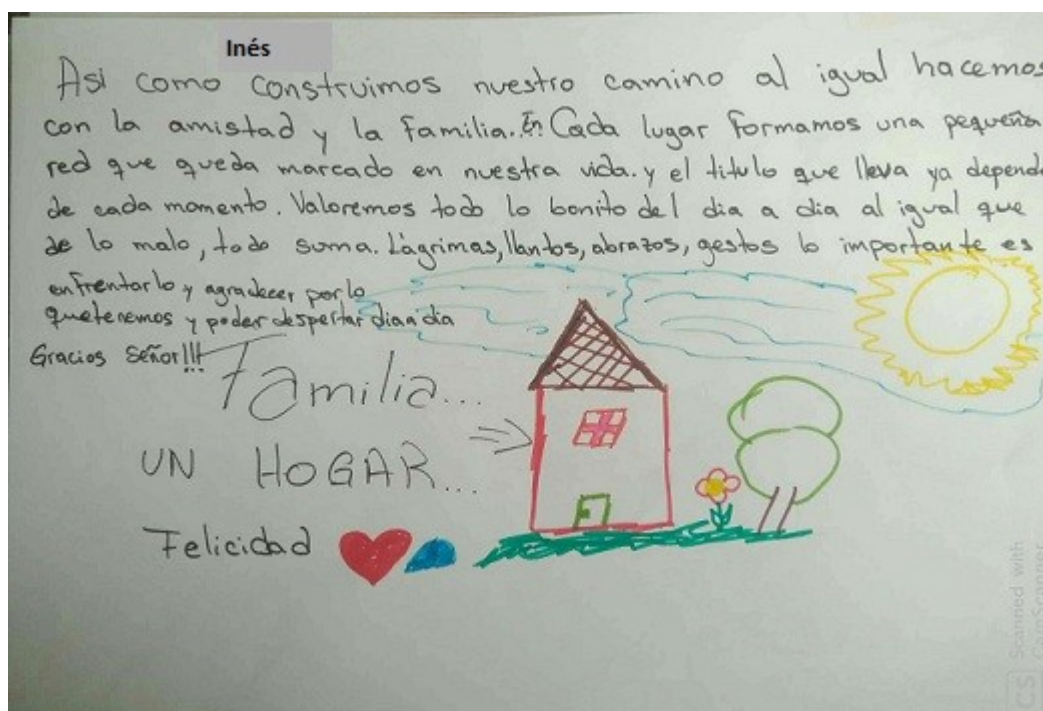 Inés
Asi como construimos nuestro camino al igual hacemos
con la amistad y la familia. En Cada lugar formamos una pequeña
red que queda marcado en nuestra vida. y el titulo que lleva ya depende
de cada momento. Valoremos todo lo bonito del dia a dia al igual que
de lo malo, todo suma. Lágrimas, llantos, abrazos, gestos lo importante es
enfrentarlo y agradecer por lo
que tenemos y poder despertar dia a dia
Gracias Señor!!!
Familia...
UN HOGAR...
Felicidad
CS Scanned with
CamScanner